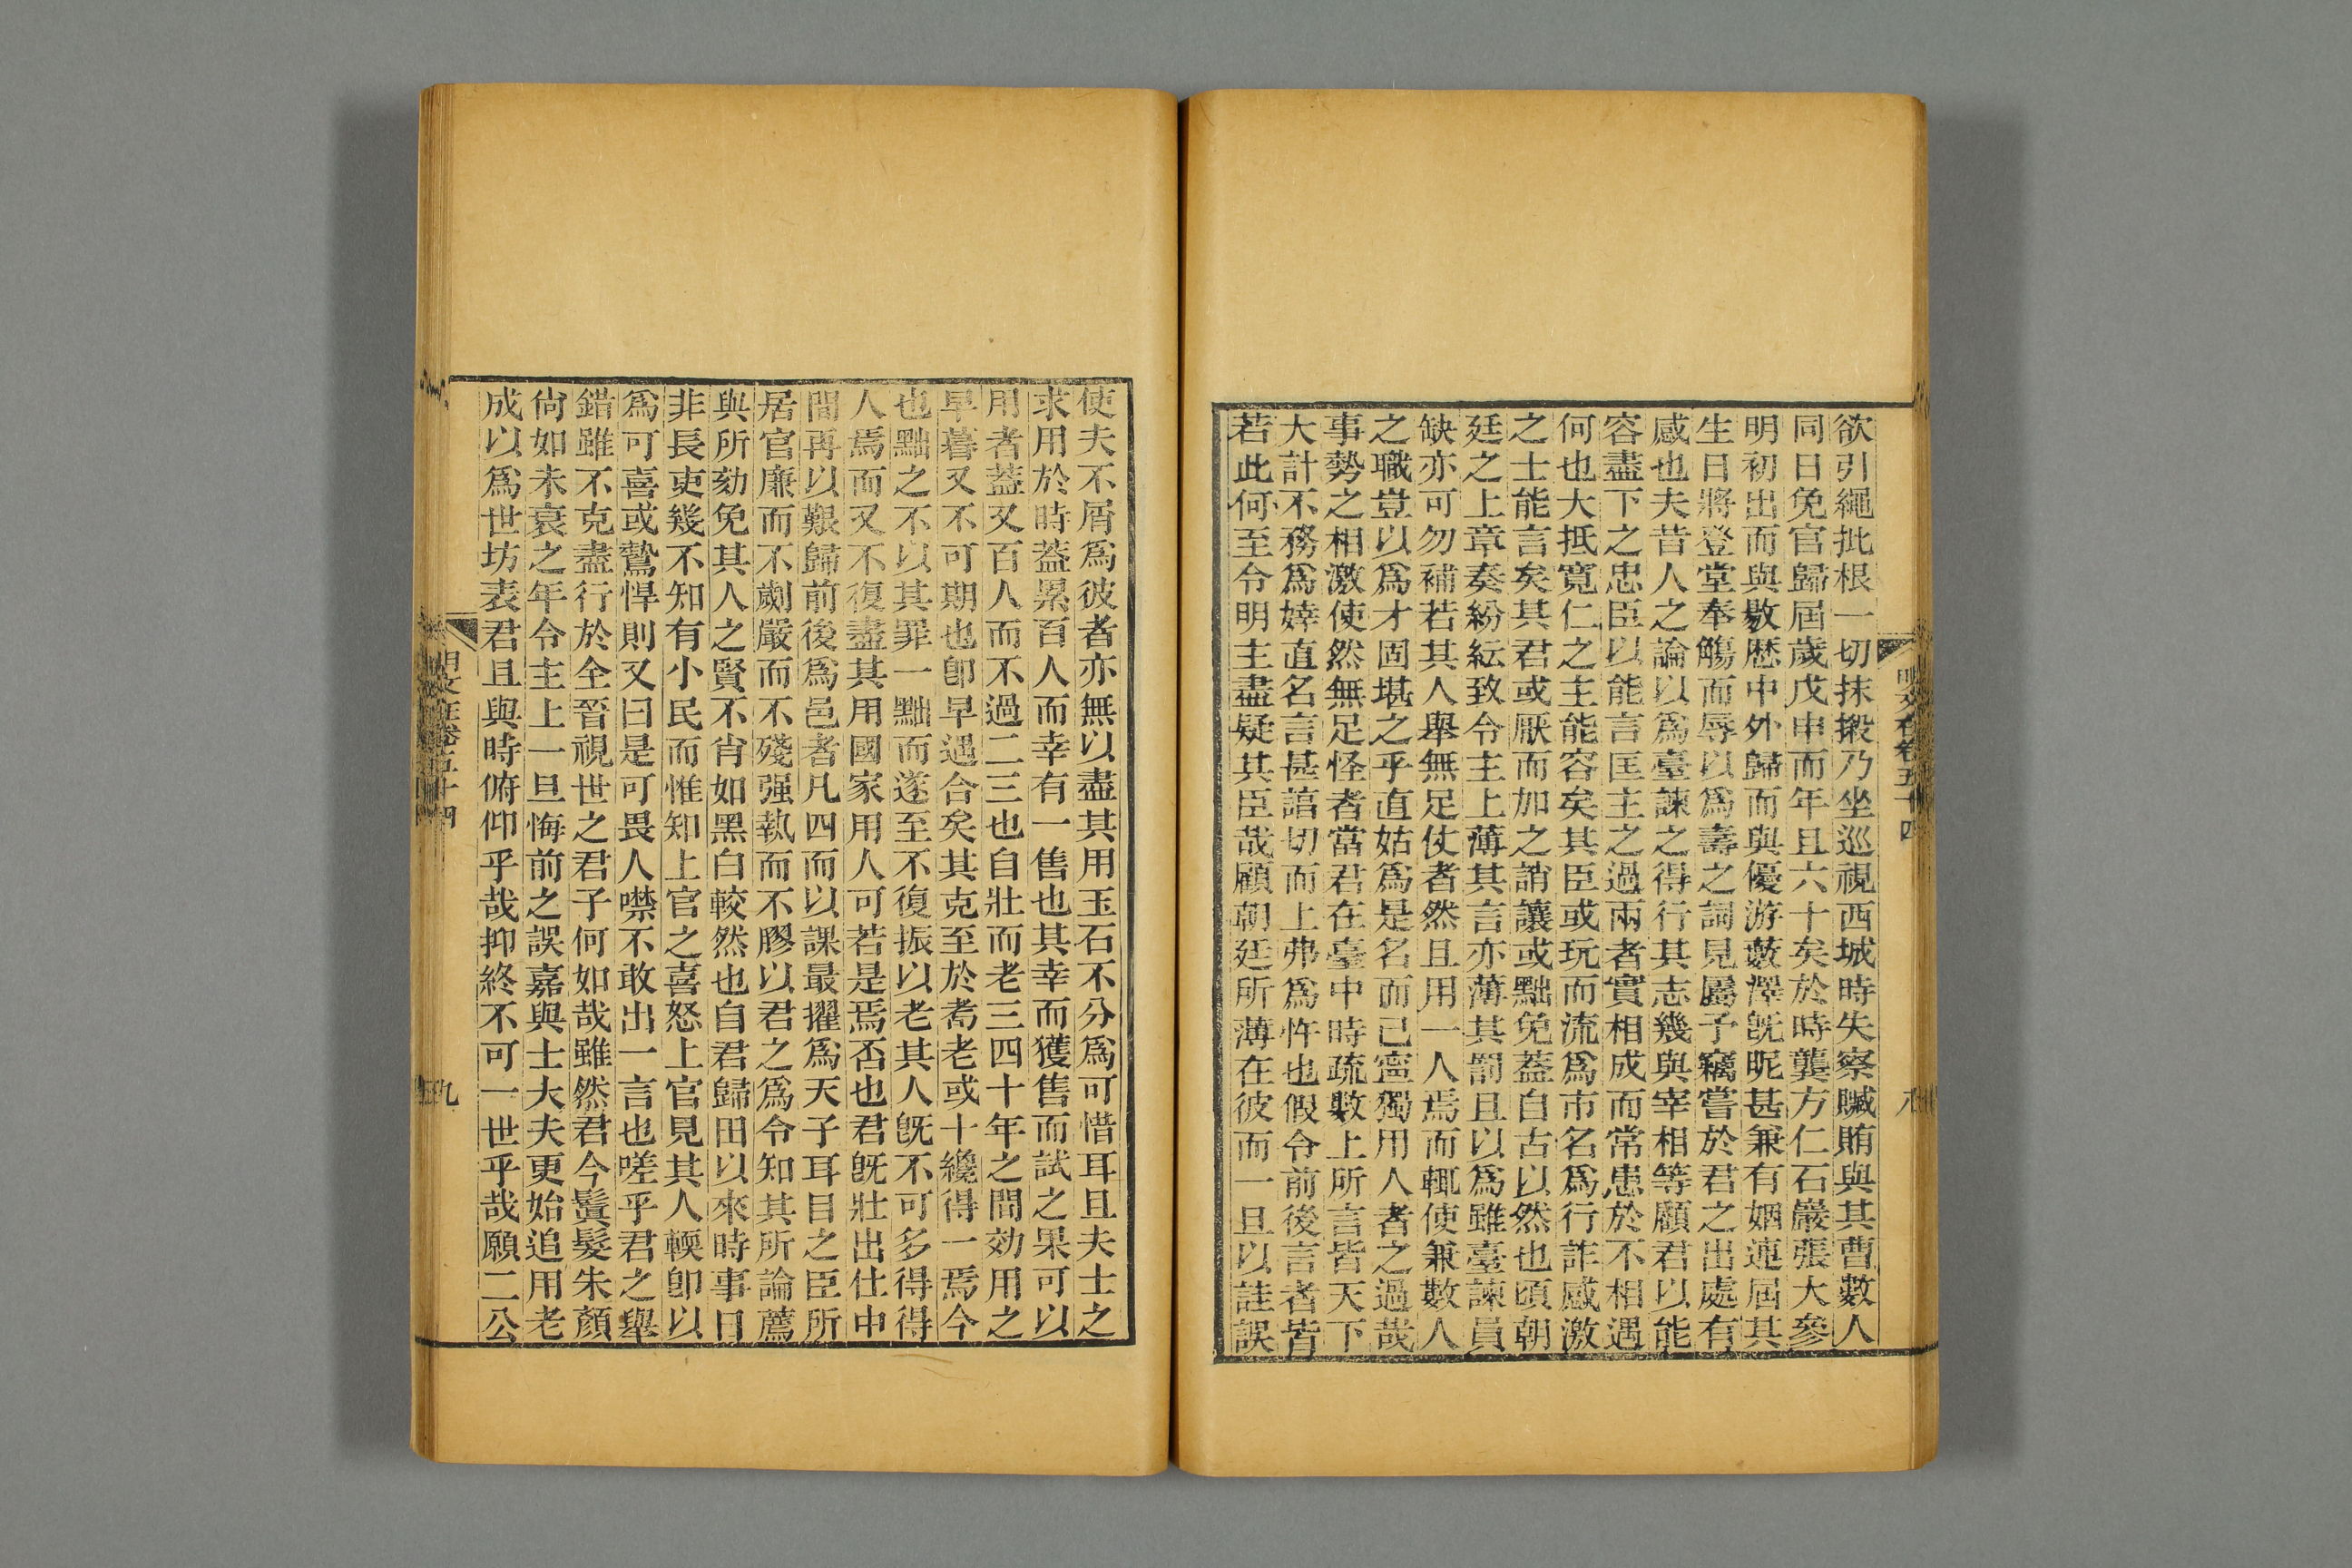 欲引繩批根一切抹摋乃坐巡視西城時失察贓賄與其曹數人
同日免官歸屆歲戊申而年且六十矣於時龔方仁石巖張大參
明初出而與敭歷中外歸而與優游藪澤旣昵甚兼有姻連屆其
生日將登堂奉觴而辱以爲壽之詞見屬予竊嘗於君之出處有
感也夫昔人之論以爲臺諫之得行其志幾與宰相等顧君以能
容盡下之忠臣以能言匡主之過兩者實相成而常患於不相遇
何也大抵寬仁之主能容矣其臣或玩而流爲市名爲行詐感激
之士能言矣其君或厭而加之誚讓或黜免蓋自古以然也頃朝
廷之上章奏紛紜致令主上薄其言亦薄其罰且以爲雖臺諫員
缺亦可勿補若其人舉無足仗者然且用一人焉而輒使兼數人
之職豈以爲才固堪之乎直姑爲是名而已寧獨用人者之過哉
事勢之相激使然無足怪者當君在臺中時疏數上所言皆天下
大計不務爲婞直名言甚諳切而上弗爲忤也假令前後言者皆
若此何至令明主盡疑其臣哉顧朝廷所薄在彼而一旦以詿誤
明文在卷五十四
八
使夫不屑爲彼者亦無以盡其用玉石不分爲可惜耳且夫士之
求用於時蓋累百人而幸有一售也其幸而獲售而試之果可以
用者蓋又百人而不過二三也自壯而老三四十年之間効用之
早暮又不可期也卽早遇合矣其克至於耇老或十纔得一焉今
也黜之不以其罪一黜而遂至不復振以老其人旣不可多得得
人焉而又不復盡其用國家用人可若是焉否也君旣壯出仕中
間再以艱歸前後爲邑者凡四而以課最擢爲天子耳目之臣所
居官廉而不劌嚴而不殘强執而不膠以君之爲令知其所論薦
與所劾免其人之賢不肖如黑白較然也自君歸田以來時事日
非長吏幾不知有小民而惟知上官之喜怒上官見其人輭卽以
爲可喜或鷙悍則又曰是可畏人噤不敢出一言也嗟乎君之舉
錯雖不克盡行於全晉視世之君子何如哉雖然君今鬒髮朱顏
尙如未衰之年令主上一旦悔前之誤嘉與士大夫更始追用老
成以爲世坊表君且與時俯仰乎哉抑終不可一世乎哉願二公
明文在卷五十四
九